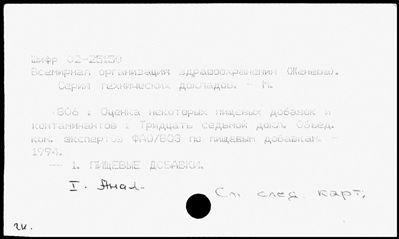 Шифр 02-25150
Всемирная организация здравоохранения (Женева).
Серия технических докладов. - М.
806 : Оценка некоторых пищевых добавок и
контаминантов : Тридцать седьмой докл. Объед.
ком. экспертов ФАО/ВОЗ по пищевым добавкам. -
1994.
-- 1. ПИЩЕВЫЕ ДОБАВКИ.
I. Анал.
См. след. карт.